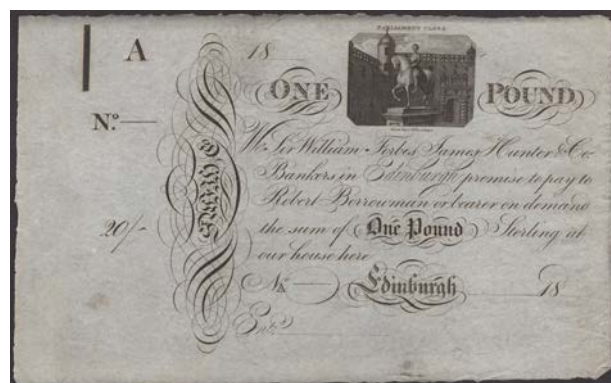 A
18
PARLIAMENT CLOSE
ONE POUND
No.
We Sir William Forbes James Hunter & Co.
Bankers in Edinburgh promise to pay to
Robert Borrowman or bearer on demand
20/-
the sum of One Pound Sterling at
our house here
No.
Edinburgh 18
Entd.